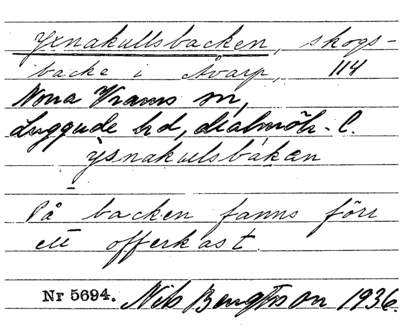 Yxnakullsbacken, skogs-
backe i Åvarp, 114
Norra Vrams sn,
Luggude hd, Malmöh. l.
ysnakulsbakan
På backen fanns förr
ett offerkast.
Nr 5694. Nils Bengtsson 1936.